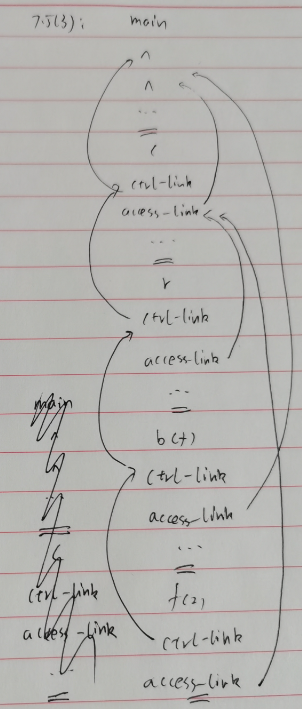 7.5(3): main
^
^
...
c
ctrl-link
access-link
...
r
ctrl-link
access-link
...
b(f)
ctrl-link
access-link
...
f(2)
ctrl-link
access-link
main
ctrl-link
access-link
...